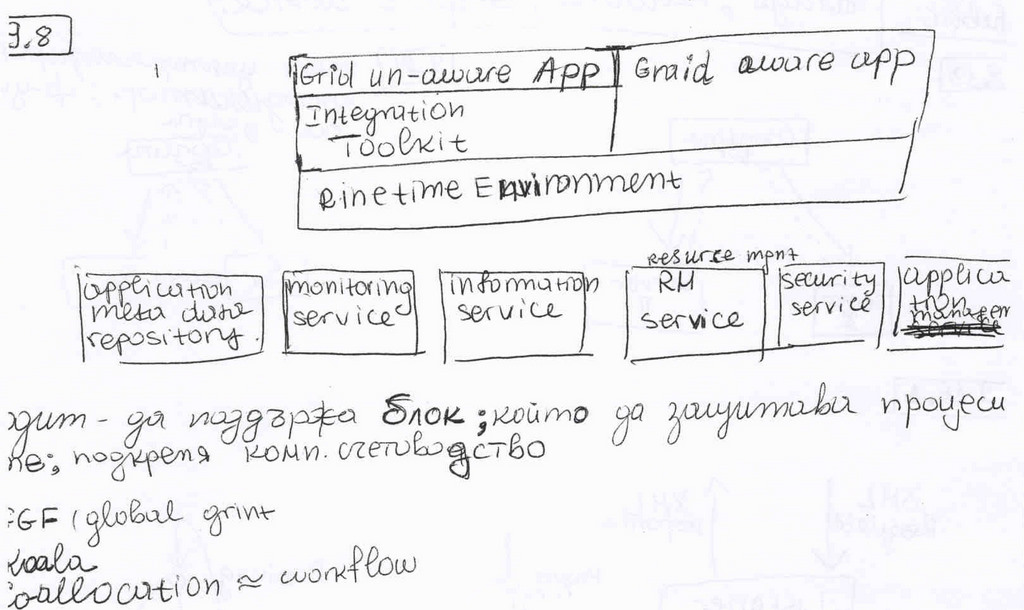 3.8
Grid un-aware App
Graid aware app
Integration
Toolkit
Rinetime Environment
application
meta data
repository.
monitoring
service
information
service
resurce mgnt
RM
service
security
service
applica
tion
manager
одит - да поддържа блок; който да защитава процеси
не; подкрепя комп. счетоводство
GGF (global grint
koala
coallocation ≈ workflow